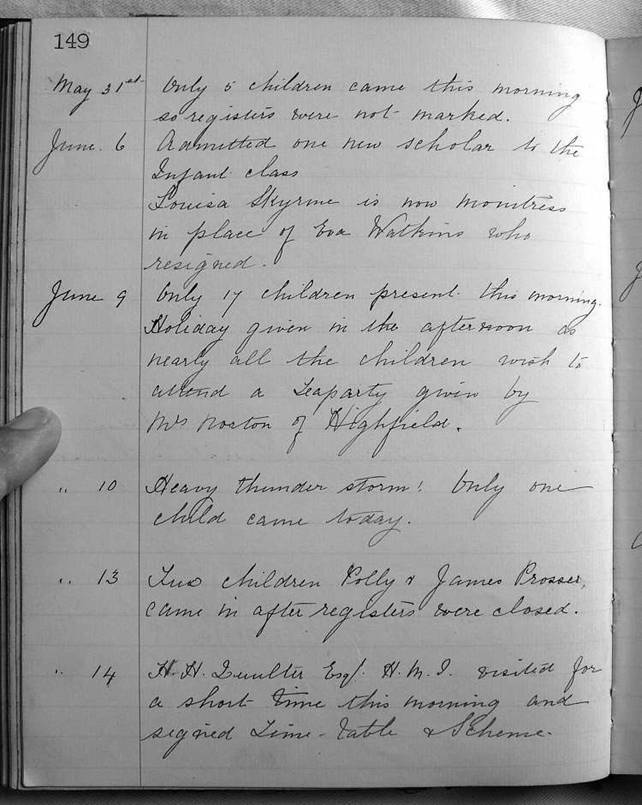 149
May 31st Only 5 children came this morning
so registers were not marked.
June. 6 Admitted one new scholar to the
Infant class
Louisa Skyrme is now monitress
in place of Eva Watkins who
resigned.
June 9 Only 17 children present this morning.
Holiday given in the afternoon as
nearly all the children wish to
attend a Teaparty given by
Mrs Norton of Highfield.
" 10 Heavy thunder storm! Only one
child came today.
" 13 Two children Polly & James Prosser,
came in after registers were closed.
" 14 H. H. Esq. H. M. I. visited for
a short time this morning and
signed Time-Table & Scheme.